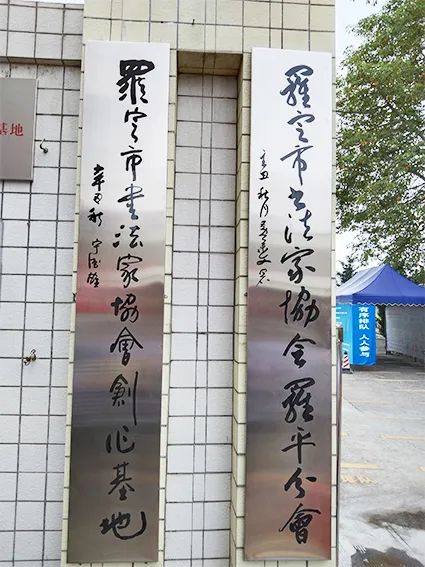 基地
羅定市書法家協會創作基地
辛丑秋
羅定市書法家協会羅平分會
辛丑秋月
有序排队 人人参与